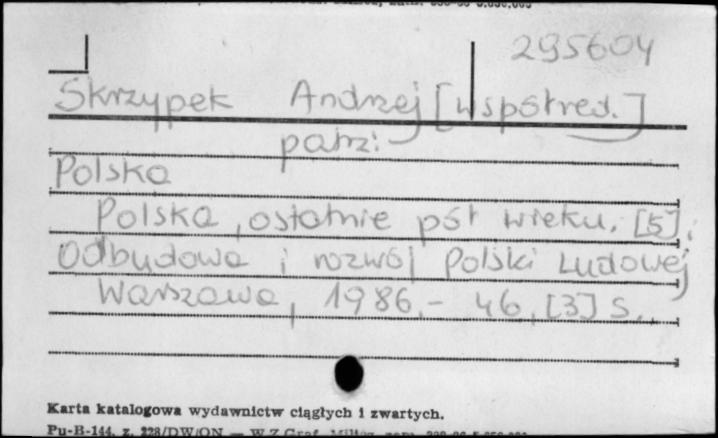 295604
Skrzypek Andrzej [współred.]
patrz:
Polska
Polska, ostatnie pół wieku. [5].
Odbudowa i rozwój Polski Ludowej
Warszawa, 1986.- 46, [3] s.
Karta katalogowa wydawnictw ciągłych i zwartych.
Pu-B-144, z. 228/DW/ON — W.Z.Graf.